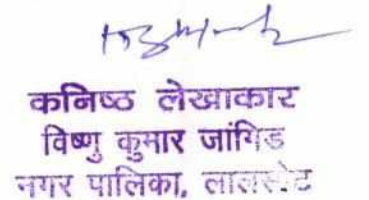 कनिष्ठ लेखाकार
विष्णु कुमार जांगिड
नगर पालिका, लालसोट